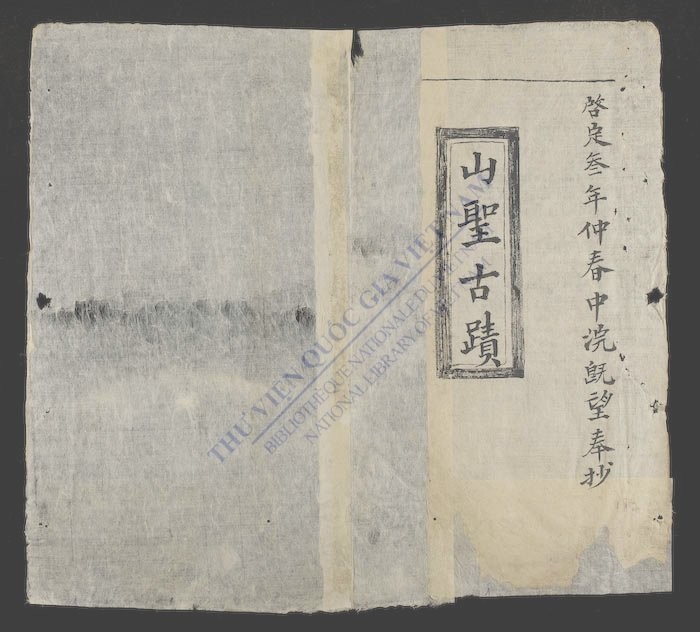 啓定叁年仲春中浣既望奉抄
山聖古蹟
THƯ VIỆN QUỐC GIA VIỆT NAM
BIBLIOTHÈQUE NATIONALE DU VIETNAM
NATIONAL LIBRARY OF VIETNAM